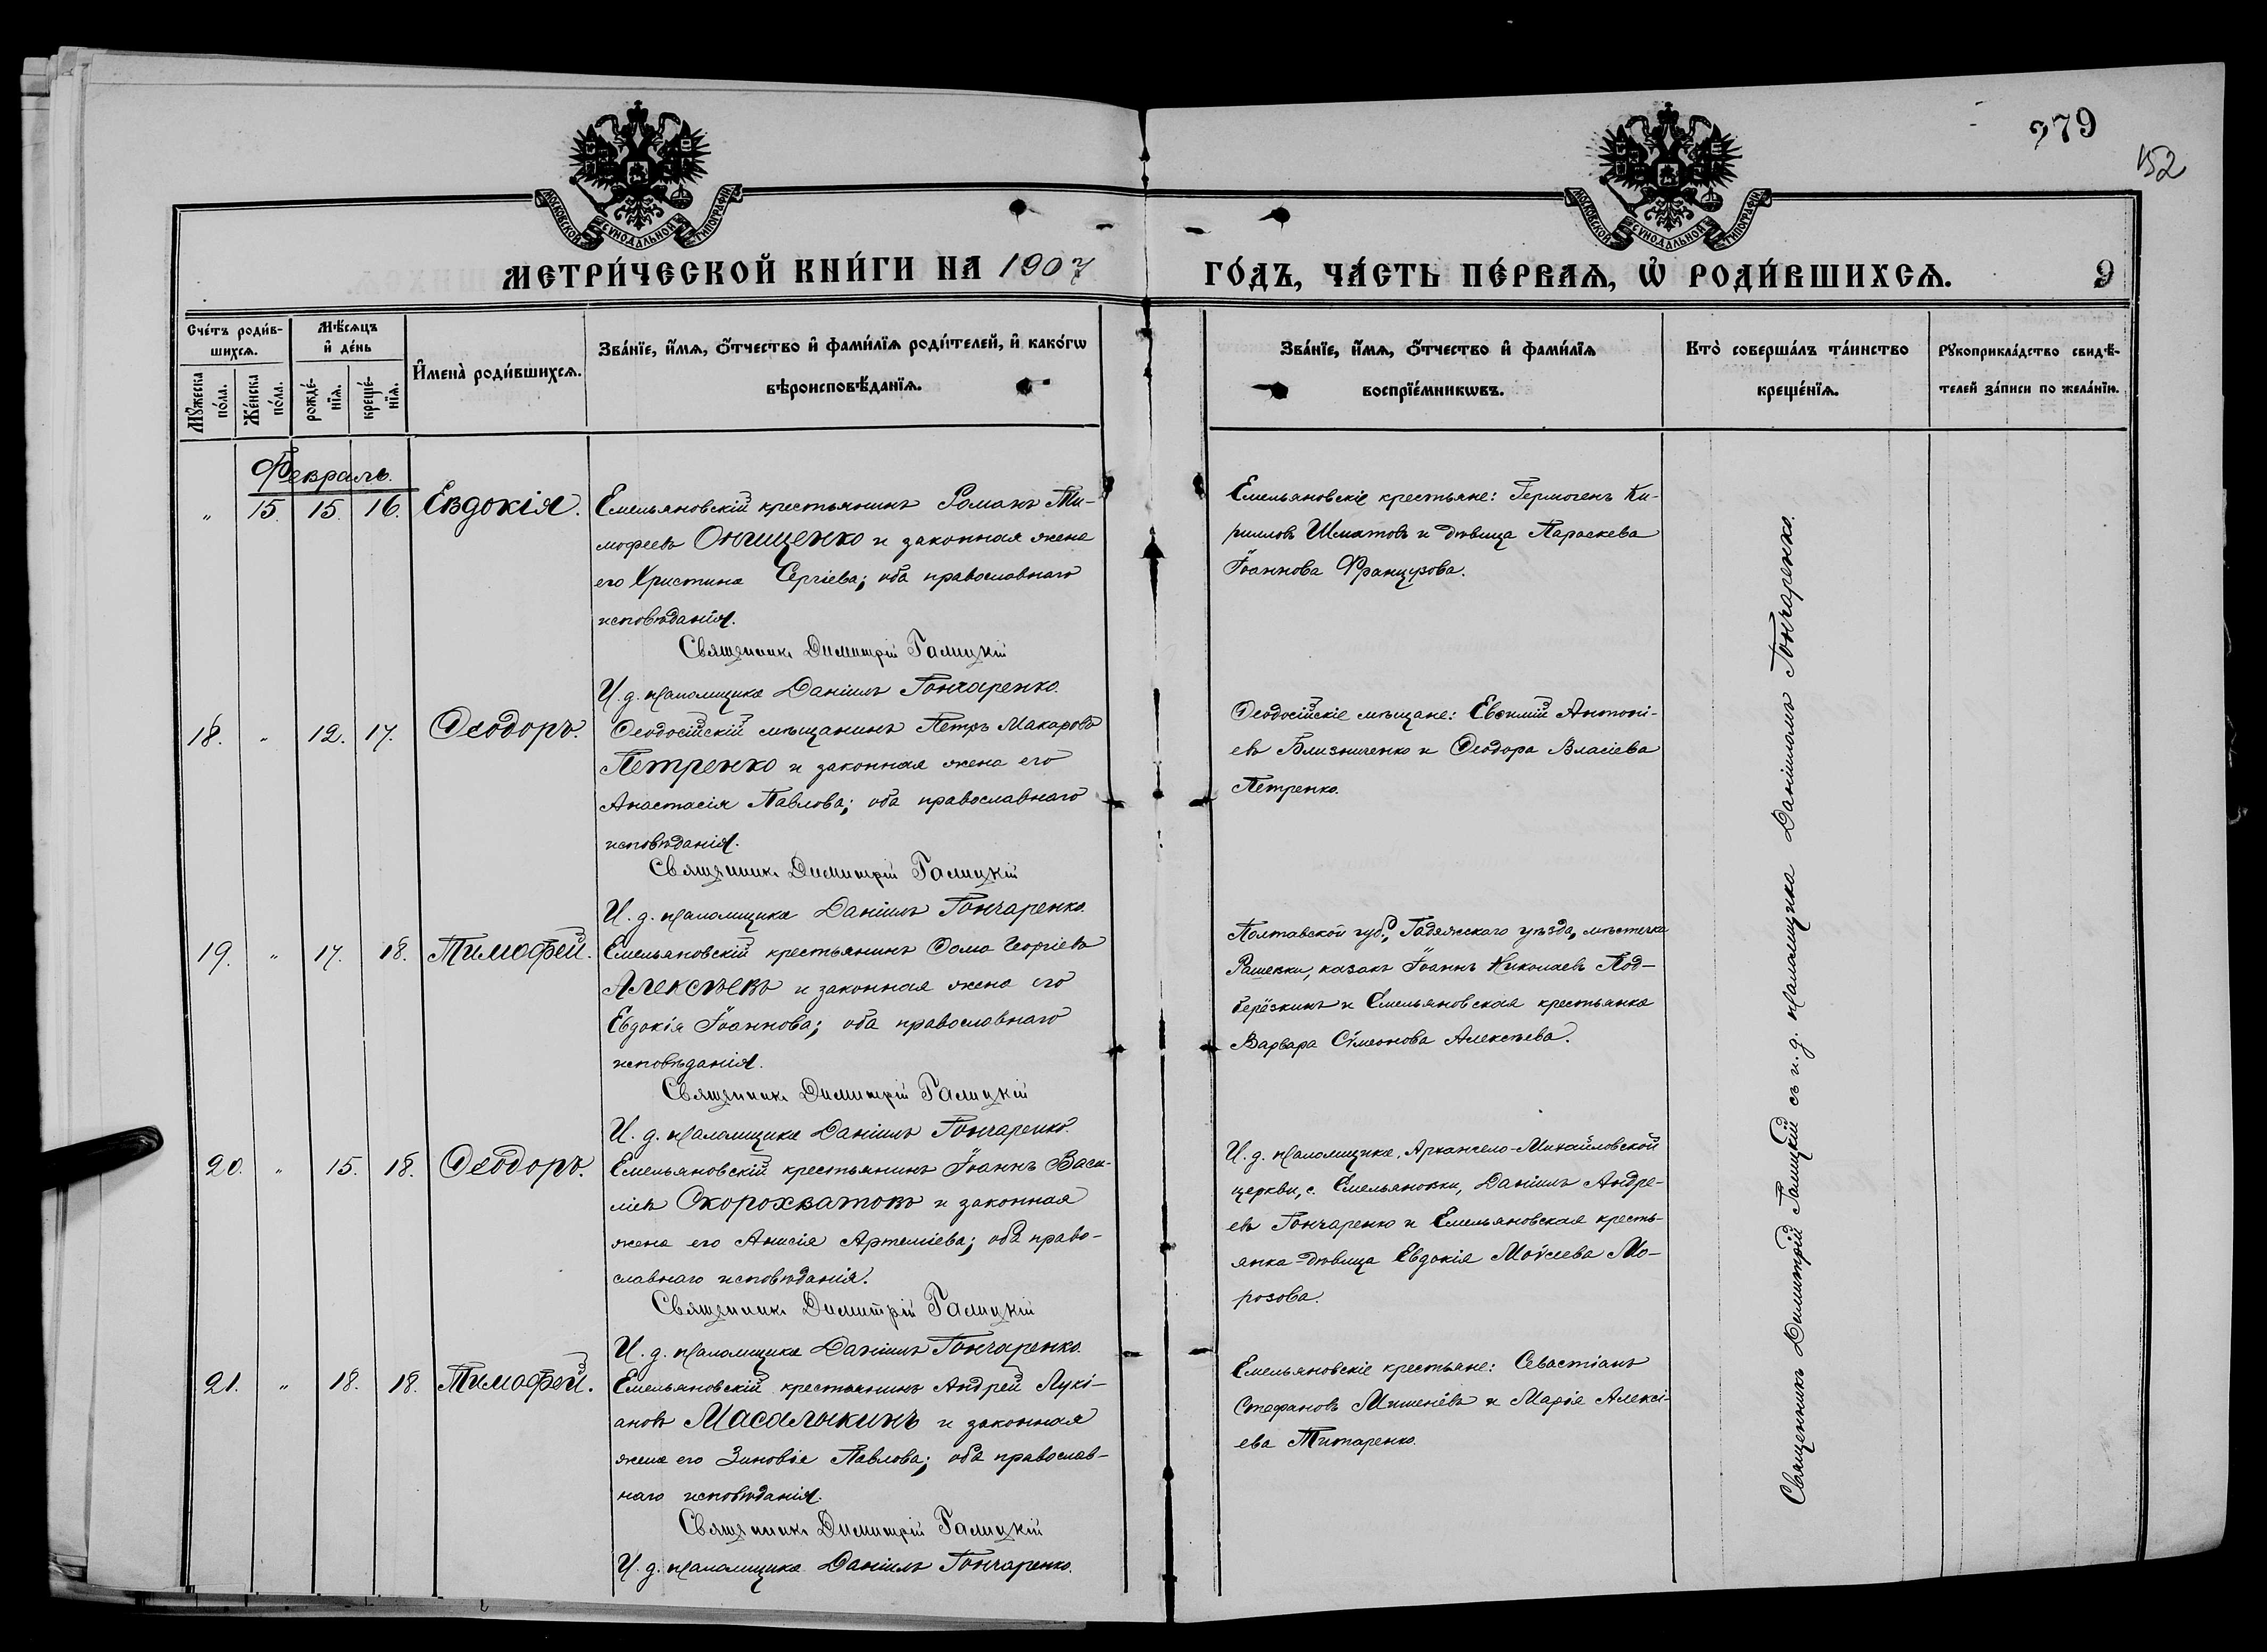 379
152
МОСКОВСКОЙ СѴНОДАЛЬНОЙ ТИПОГРАФІИ
МОСКОВСКОЙ СѴНОДАЛЬНОЙ ТИПОГРАФІИ
МЕТРИ́ЧЕСКОЙ КНИ́ГИ НА 1907
ГО́ДЪ, ЧА́СТЬ ПЕ́РВАѦ, Ѡ҆ РОДИ́ВШИХСѦ.
9
Сче́тъ роди́в-
шихсѧ.
Мꙋ́жеска по́ла.
Же́нска по́ла.
Мѣ́сѧцъ
и҆ де́нь
рожде́-
нїѧ.
креще́-
нїѧ.
И҆мена̀ роди́вшихсѧ.
Зва́нїе, и҆́мѧ, ѻ҆́тчество и҆ фами́лїѧ роди́телей, и҆ како́гѡ
вѣроисповѣ́данїѧ.
Зва́нїе, и҆́мѧ, ѻ҆́тчество и҆ фами́лїѧ
воспрїе́мникѡвъ.
Кто̀ соверша́лъ та́инство
креще́нїѧ.
Рꙋкоприкла́дство свидѣ́-
телей за́писи по жела́нїю.
Февраль.
" 15. 15. 16. Евдокія.
Емельяновскій крестьянинъ Романъ Ти-
мофеевъ Онищенко и законная жена
его Христина Сергіева; оба православнаго
исповѣданія.
Священникъ Димитрій Галицкій
И. д. псаломщика Даніилъ Гончаренко.
Емельяновскіе крестьяне: Гермогенъ Ки-
рилловъ Шматовъ и дѣвица Параскева
Іоаннова Французова.
18. " 12. 17. Ѳеодоръ.
Ѳеодосійскій мѣщанинъ Петръ Макаровъ
Петренко и законная жена его
Анастасія Павлова; оба православнаго
исповѣданія.
Священникъ Димитрій Галицкій
И. д. псаломщика Даніилъ Гончаренко.
Ѳеодосійскіе мѣщане: Евѳимій Антоні-
евъ Близниченко и Ѳеодора Власіева
Петренко.
19. " 17. 18. Тимофей.
Емельяновскій крестьянинъ Ѳома Георгіевъ
Алексѣевъ и законная жена его
Евдокія Іоаннова; оба православнаго
исповѣданія.
Священникъ Димитрій Галицкій
И. д. псаломщика Даніилъ Гончаренко.
Полтавской губ., Гадяжскаго уѣзда, мѣстечка
Рашевки, казакъ Іоаннъ Николаевъ Под-
берёзкинъ и Емельяновская крестьянка
Варвара Сѵмеонова Алексѣева.
20. " 15. 18. Ѳеодоръ.
Емельяновскій крестьянинъ Іоаннъ Васи-
ліевъ Скорохватовъ и законная
жена его Анисія Артеміева; оба право-
славнаго исповѣданія.
Священникъ Димитрій Галицкій
И. д. псаломщика Даніилъ Гончаренко.
И. д. псаломщика, Архангело-Михайловской
церкви, с. Емельяновки, Даніилъ Андре-
евъ Гончаренко и Емельяновская кресть-
янка-дѣвица Евдокія Моѵсеева Мо-
розова.
21. " 18. 18. Тимофей.
Емельяновскій крестьянинъ Андрей Лукі-
ановъ Масалыкинъ и законная
жена его Зиновія Павлова; оба православ-
наго исповѣданія.
Священникъ Димитрій Галицкій
И. д. псаломщика Даніилъ Гончаренко.
Емельяновскіе крестьяне: Севастіанъ
Стефановъ Мишенёвъ и Марія Алексі-
ева Титаренко.
Священникъ Димитрій Галицкій съ и. д. псаломщика Даніиломъ Гончаренко.